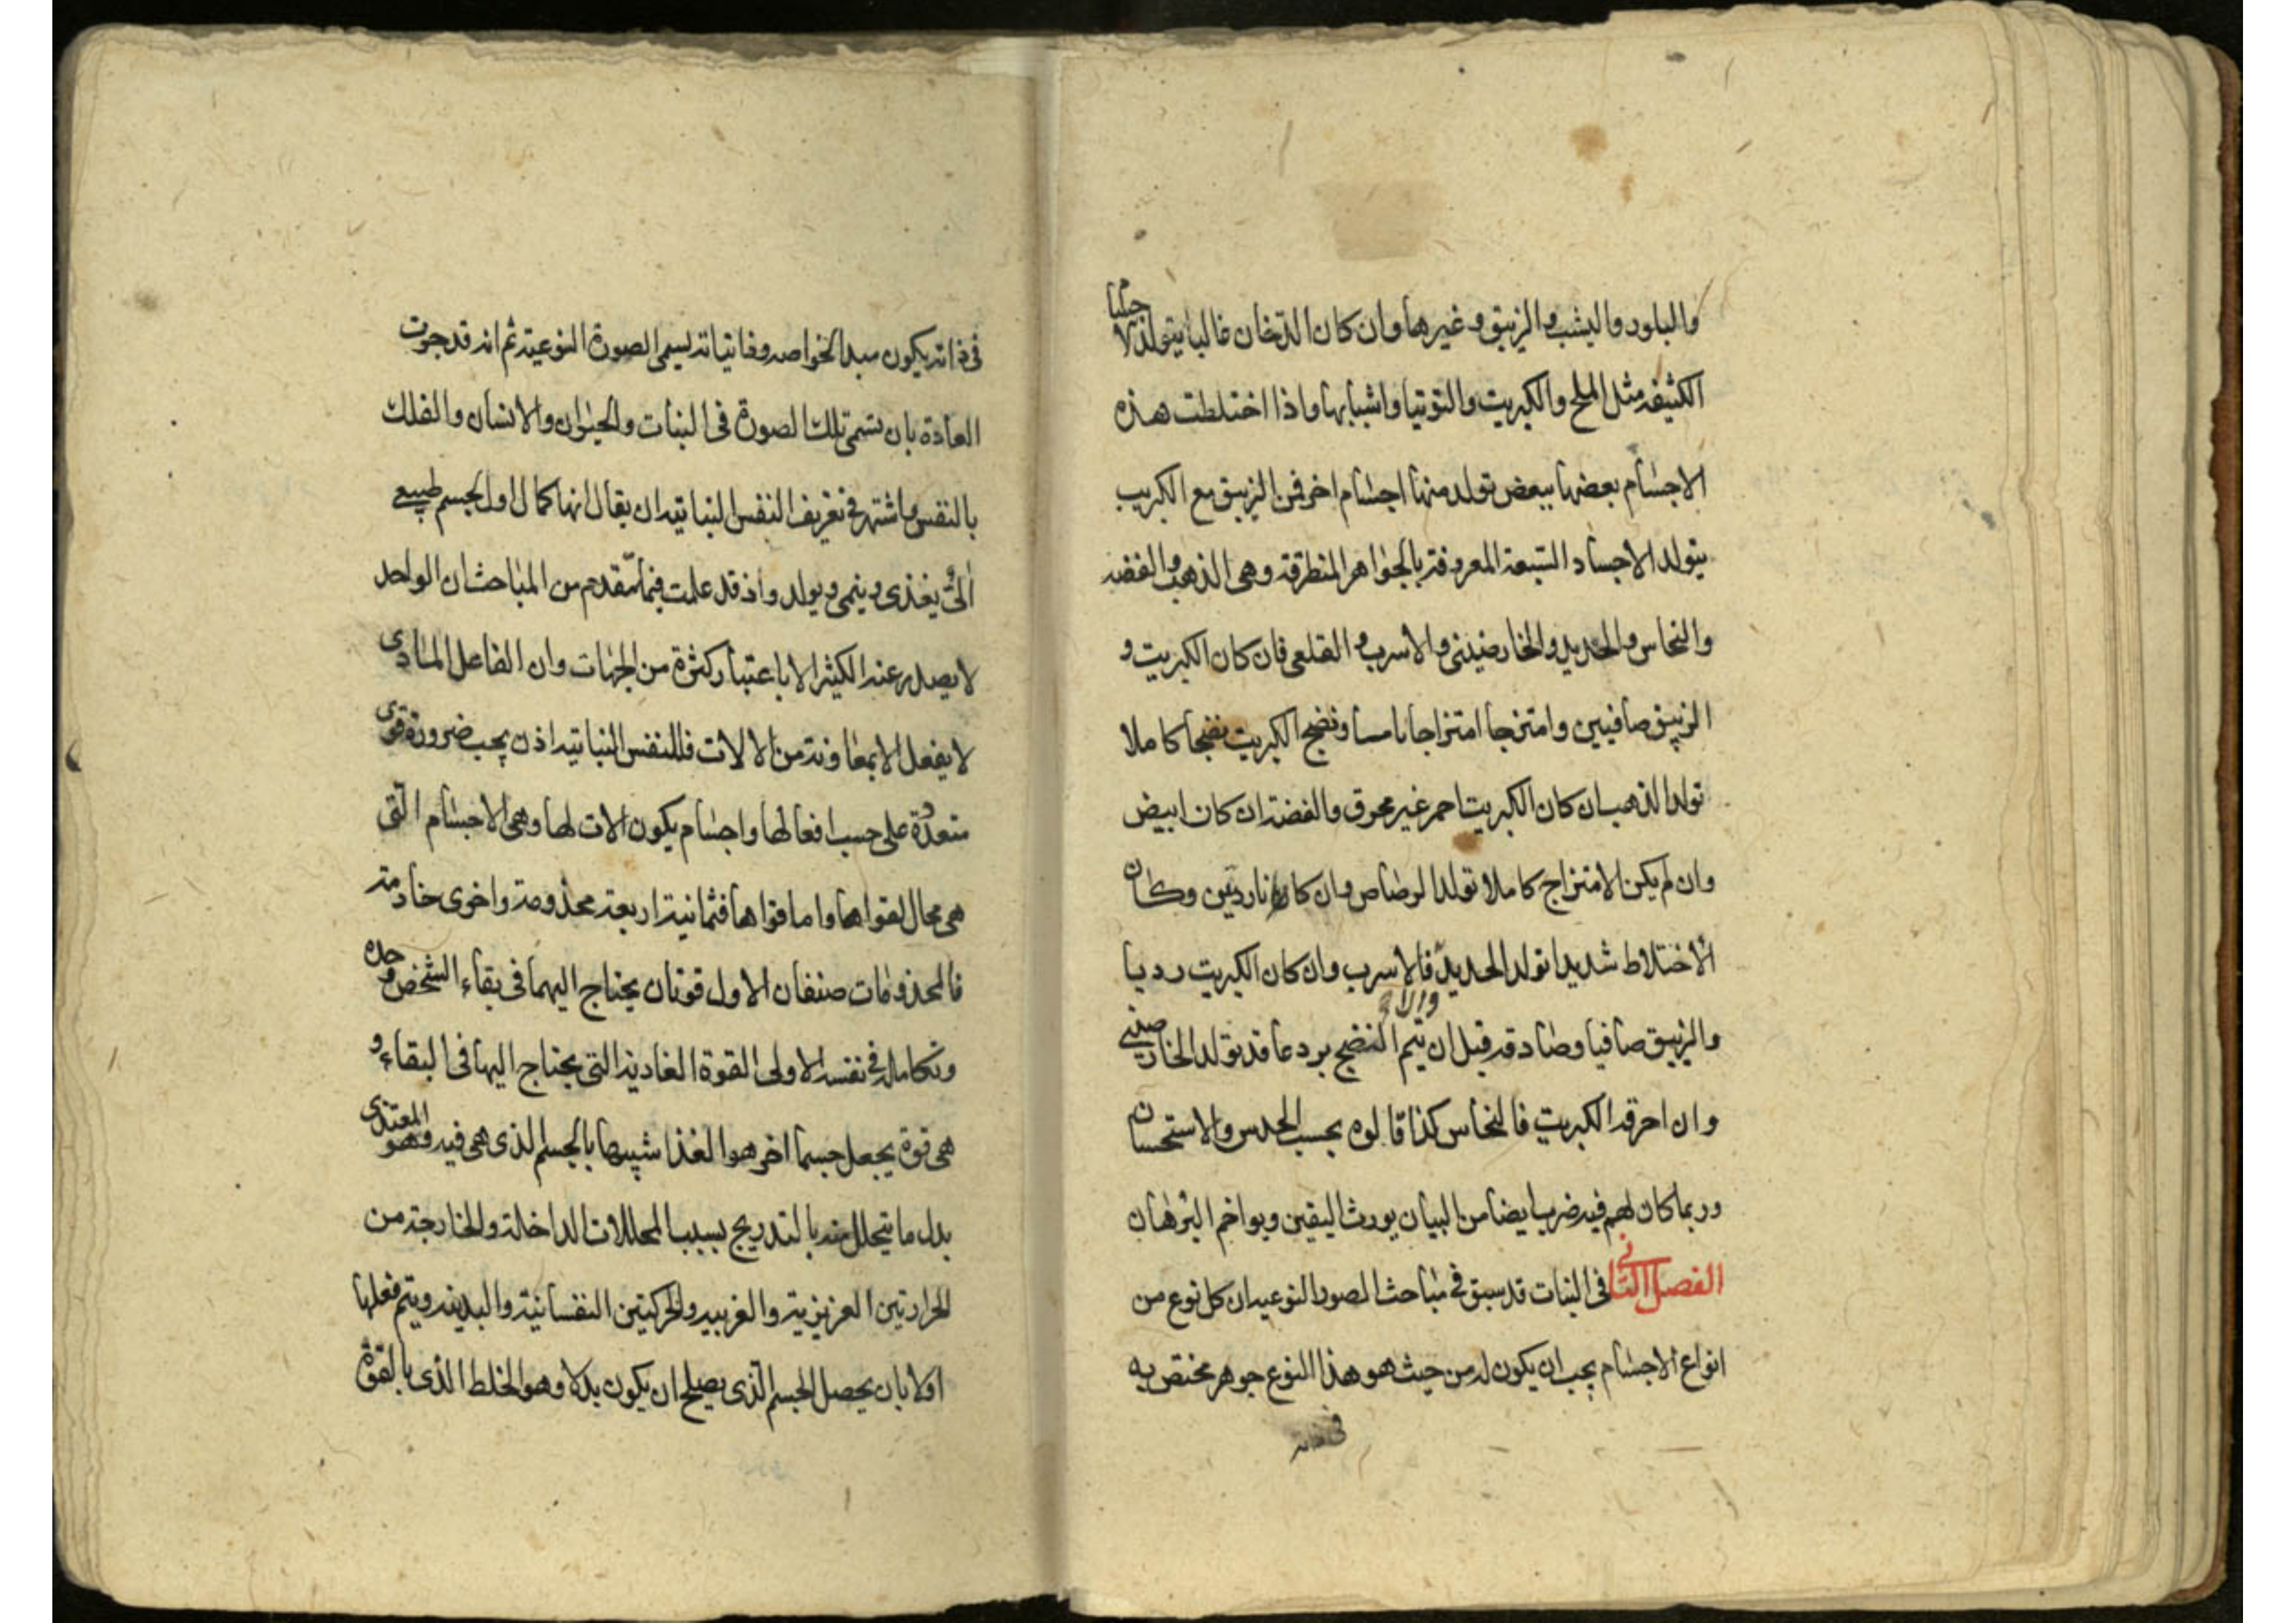 والبلور واليشب والزيبق وغيرها وان كان الدخان غالبا يتولد الاجسام
الكثيفه مثل الملح والكبريت والتوتيا واشباهها واذا اختلطت هذه
الاجسام بعضها ببعض تولد منها اجسام اخر فمن الزيبق مع الكبريت
يتولد الاجساد السبعة المعروفة بالجواهر المنطرقة وهى الذهب والفضه
والنحاس والحديد والخارصينى والاسرب والقلعى فان كان الكبريت و
الزيبق صافيين وامتزجا امتزاجا تاما ونضج الكبريت نضجا كاملا
تولد الذهب ان كان الكبريت احمر غير محرق والفضة ان كان ابيض
وان لم يكن الامتزاج كاملا تولد الرصاص وان كانا رديين وكان
الاختلاط شديدا تولد الحديد والا فالاسرب وان كان الكبريت رديا
والزيبق صافيا وصادقه قبل ان يتم النضج برد عاقد تولد الخارصينى
وان احرقه الكبريت فالنحاس كذا قالوه بحسب الحدس والاستحسان
وربما كان لهم فيه ضرب ايضا من البيان يورث اليقين ويواخم البرهان
الفصل الثانى فى النبات قد سبق فى مباحث الصور النوعيه ان كل نوع من
انواع الاجسام يجب ان يكون له من حيث هو هذا النوع جوهر مختص به
فى ذاته
فى ذاته يكون مبدا لخواصه وفانياته يسمى الصورة النوعية ثم انه قد جرت
العادة بان تسمى تلك الصورة فى النبات والحيوان والانسان والفلك
بالنفس واشتهر فى تعريف النفس النباتيه ان يقال انها كمال اول لجسم طبيعى
الى يغذى وينمى ويولد واذ قد علمت فيما تقدم من المباحث ان الواحد
لا يصدر عنه الكثير الا باعتبار كثرة من الجهات وان الفاعل المادى
لا يفعل الا بمعاونة من الالات فللنفس النباتيه اذن يجب ضرورة قوى
متعددة على حسب افعالها واجسام يكون الات لها وهى الاجسام التى
هى محال لقواها واما قواها فثمانية اربعة مخدومة واخرى خادمة
فالمخدومات صنفان الاول قوتان يحتاج اليهما فى بقاء الشخص وحده
وتكامله فى نفسه الاولى القوة الغاذية التى يحتاج اليها فى البقاء و
هى قوة يجعل جسما اخر هو الغذا شبيها بالجسم الذى هى فيه وهو المغتذى
بدل ما يتحلل منه بالتدريج بسبب المحللات الداخلة والخارجة من
الحرارتين الغريزية والغريبه والحركتين النفسانية والبدنيه ويتم فعلها
اولا بان يحصل الجسم الذى يصلح ان يكون بدلا وهو الخلط الذى بالقوة